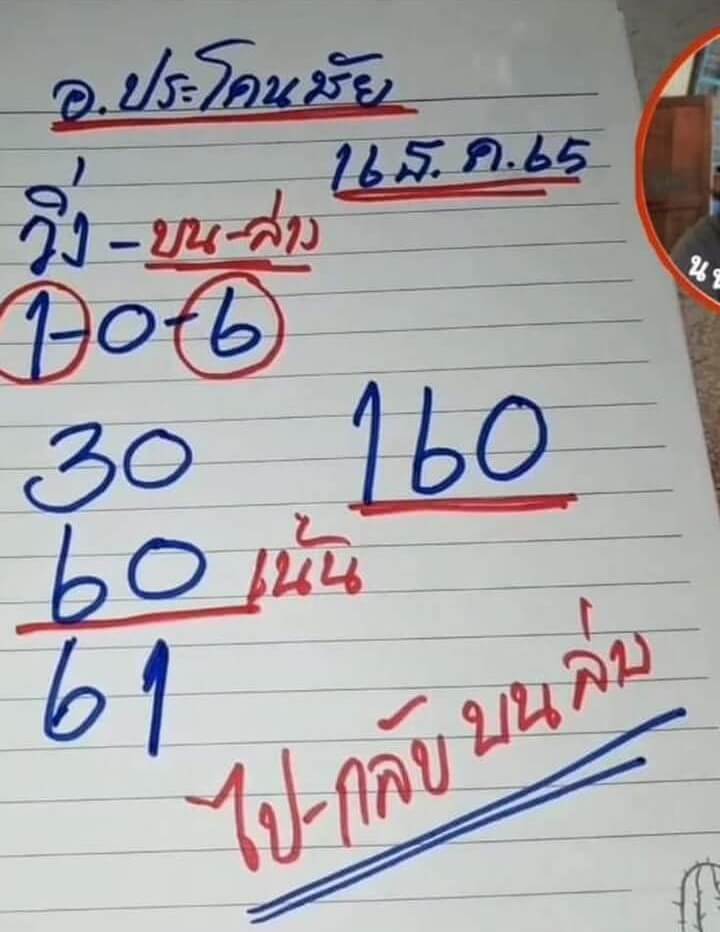 อ.ประโคนชัย
16 ธ.ค.65
วิ่ง - บน-ล่าง
1-0-6
30
160
60 เน้น
61
ไป-กลับ บน ล่าง